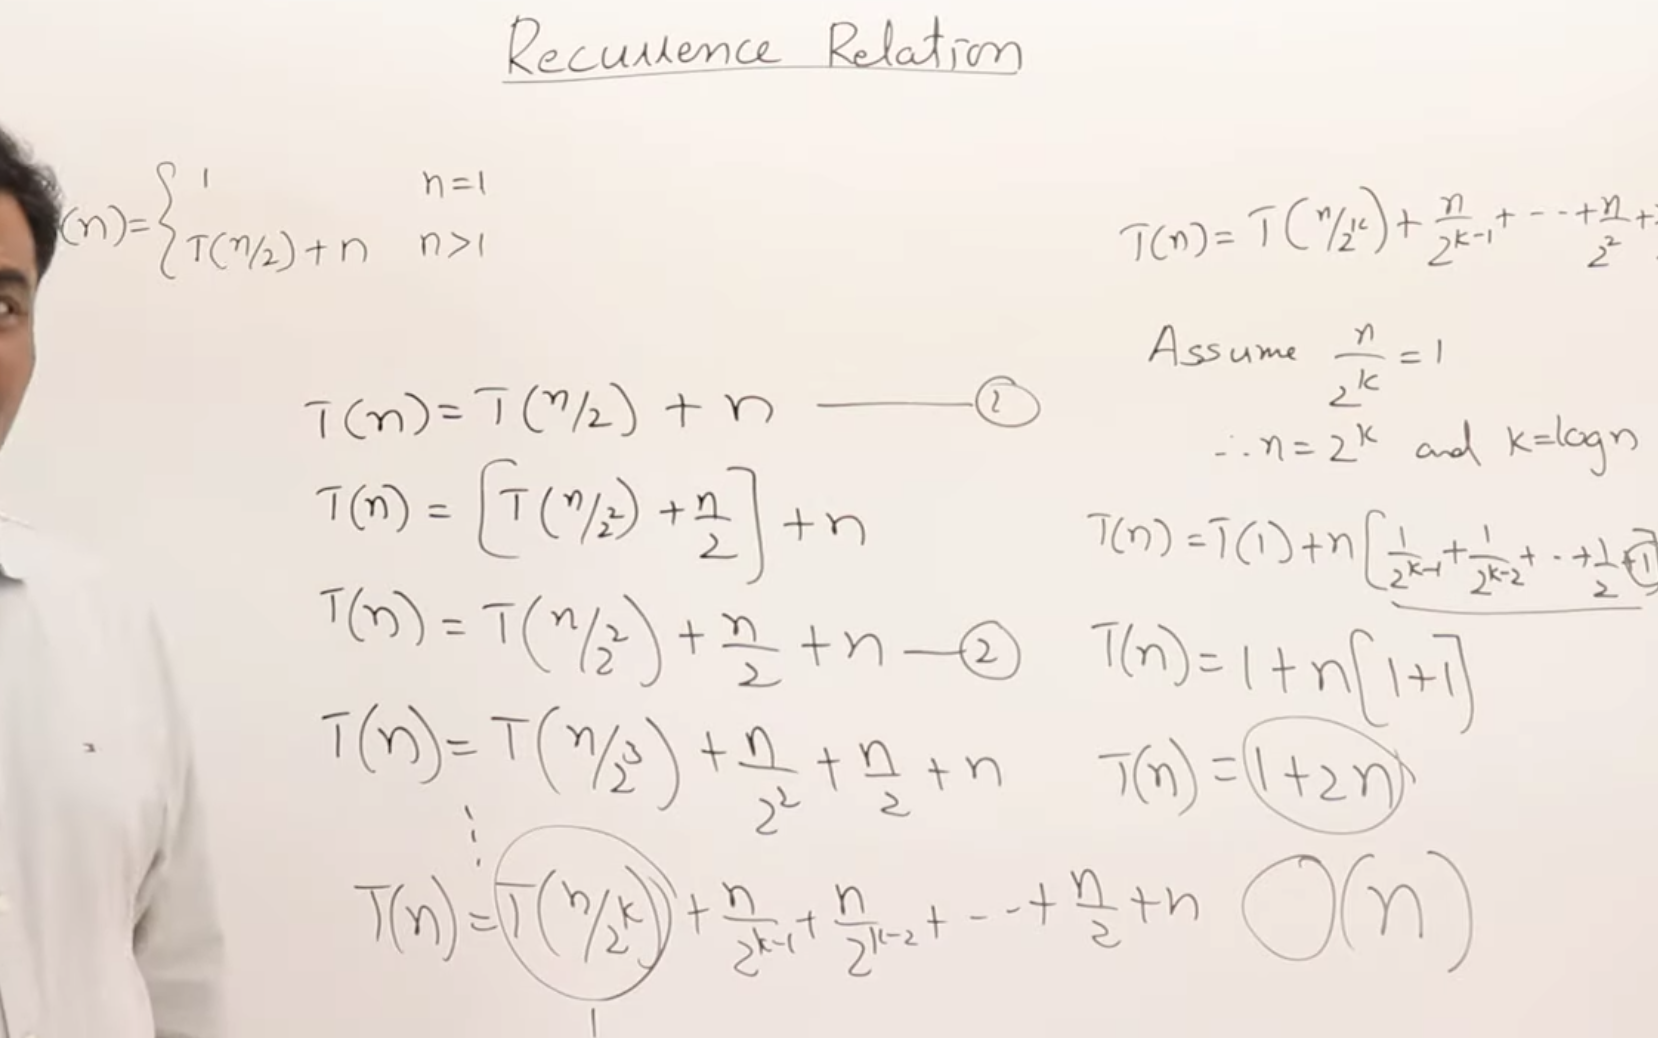 Recurrence Relation
(n) = { 1 n=1
T(n/2)+n n>1
T(n) = T(n/2) + n —— ①
T(n) = [T(n/2²) + n/2] + n
T(n) = T(n/2²) + n/2 + n — ②
T(n) = T(n/2³) + n/2² + n/2 + n
⋮
T(n) = T(n/2ᵏ) + n/2ᵏ⁻¹ + n/2ᵏ⁻² + --- + n/2 + n
T(n) = T(n/2ᵏ) + n/2ᵏ⁻¹ + --- + n/2² +
Assume n/2ᵏ = 1
∴ n = 2ᵏ and k=logn
T(n) = T(1) + n[1/2ᵏ⁻¹ + 1/2ᵏ⁻² + -- + 1/2 + 1]
T(n) = 1 + n[1+1]
T(n) = 1+2n
O(n)